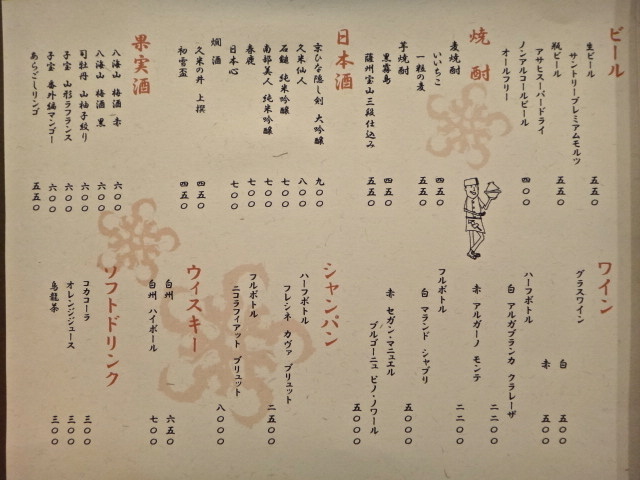 ビール
生ビール
サントリープレミアムモルツ 五五〇
瓶ビール
アサヒスーパードライ 五五〇
ノンアルコールビール
オールフリー 四〇〇
焼酎
麦焼酎
いいちこ 四五〇
一粒の麦 五五〇
芋焼酎
黒霧島 四五〇
薩州宝山 三段仕込み 五五〇
日本酒
京ひな隠し剣 大吟醸 九〇〇
久米仙人 八〇〇
石鎚 純米吟醸 七〇〇
南部美人 純米吟醸 七〇〇
春鹿 七〇〇
日本心 七〇〇
燗酒
久米の井 上撰 四五〇
初雪盃 四五〇
果実酒
八海山 梅酒 赤 六〇〇
八海山 梅酒 黒 六〇〇
司牡丹 山柚子絞り 六〇〇
子宝 山形ラフランス 六〇〇
子宝 番外編マンゴー 六〇〇
あらごしリンゴ 五五〇
ワイン
グラスワイン
白 五〇〇
赤 五〇〇
ハーフボトル
白 アルガブランカ クラレーザ 二二〇〇
赤 アルガーノ モンテ 二二〇〇
フルボトル
白 マランド シャブリ 五〇〇〇
赤 セガン・マニュエル
ブルゴーニュ ピノ・ノワール 五〇〇〇
シャンパン
ハーフボトル
フレシネ カヴァ ブリュット 二五〇〇
フルボトル
ニコラフィアット ブリュット 八〇〇〇
ウィスキー
白州 六五〇
白州 ハイボール 七〇〇
ソフトドリンク
コカコーラ 三〇〇
オレンジジュース 三〇〇
烏龍茶 三〇〇